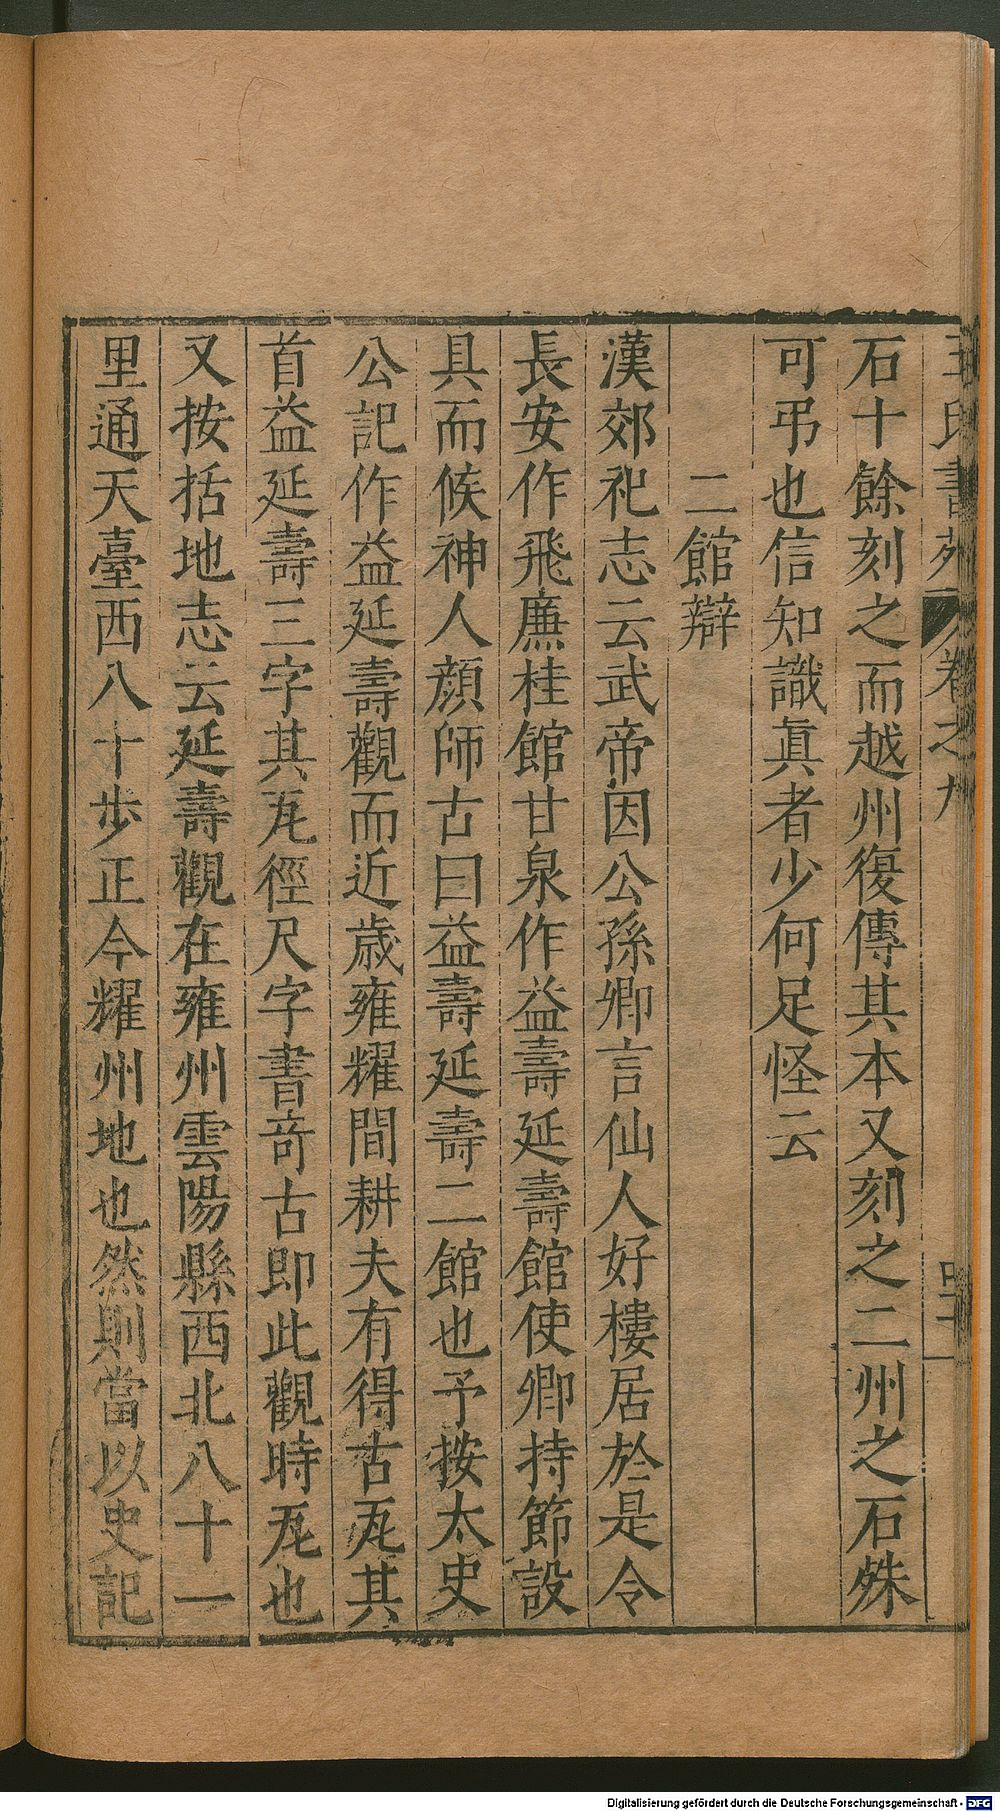 王氏書苑 卷之九
石十餘刻之而越州復傳其本又刻之二州之石殊
可弔也信知識眞者少何足怪云
二館辯
漢郊祀志云武帝因公孫卿言仙人好樓居於是令
長安作飛廉桂館甘泉作益壽延壽館使卿持節設
具而候神人顔師古曰益壽延壽二館也予按太史
公記作益延壽觀而近歳雍耀間耕夫有得古瓦其
首益延壽三字其瓦徑尺字書竒古即此觀時瓦也
又按括地志云延壽觀在雍州雲陽縣西北八十一
里通天臺西八十步正今耀州地也然則當以史記
Digitalisierung gefördert durch die Deutsche Forschungsgemeinschaft - DFG